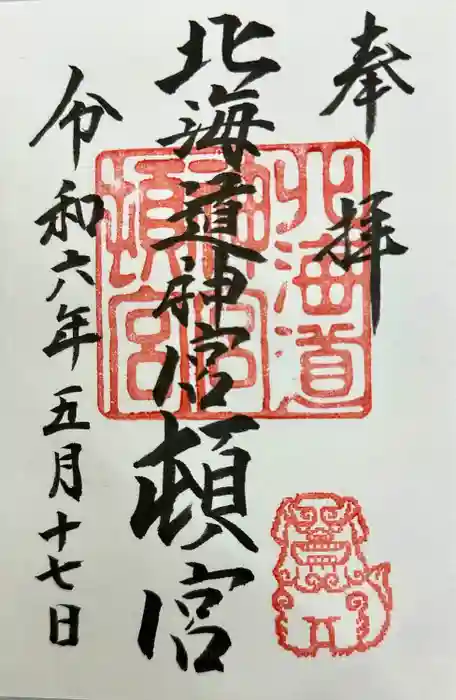 奉拝
北海道神宮頓宮
北海道
神宮
頓宮
令和六年五月十七日